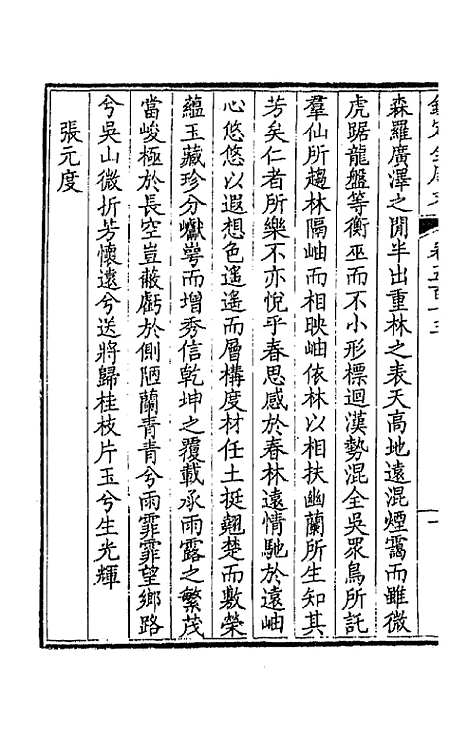 森羅廣澤之閒半出重林之表天高地遠混煙靄而雖微
虎踞龍盤等衡巫而不小形標迴漢勢混全吳眾鳥所託
羣仙所趨林隔岫而相映岫依林以相扶幽蘭所生知其
芳矣仁者所樂不亦悅乎春思感於春林遠情馳於遠岫
心悠悠以遐想色遙遙而層構度材任土挺翹楚而敷榮
蘊玉藏珍分巘崿而增秀信乾坤之覆載承雨露之繁茂
當峻極於長空豈蔽虧於側陋蘭青青兮雨霏霏望鄉路
兮吳山微折芳懷遠兮送將歸桂枝片玉兮生光輝
張元度